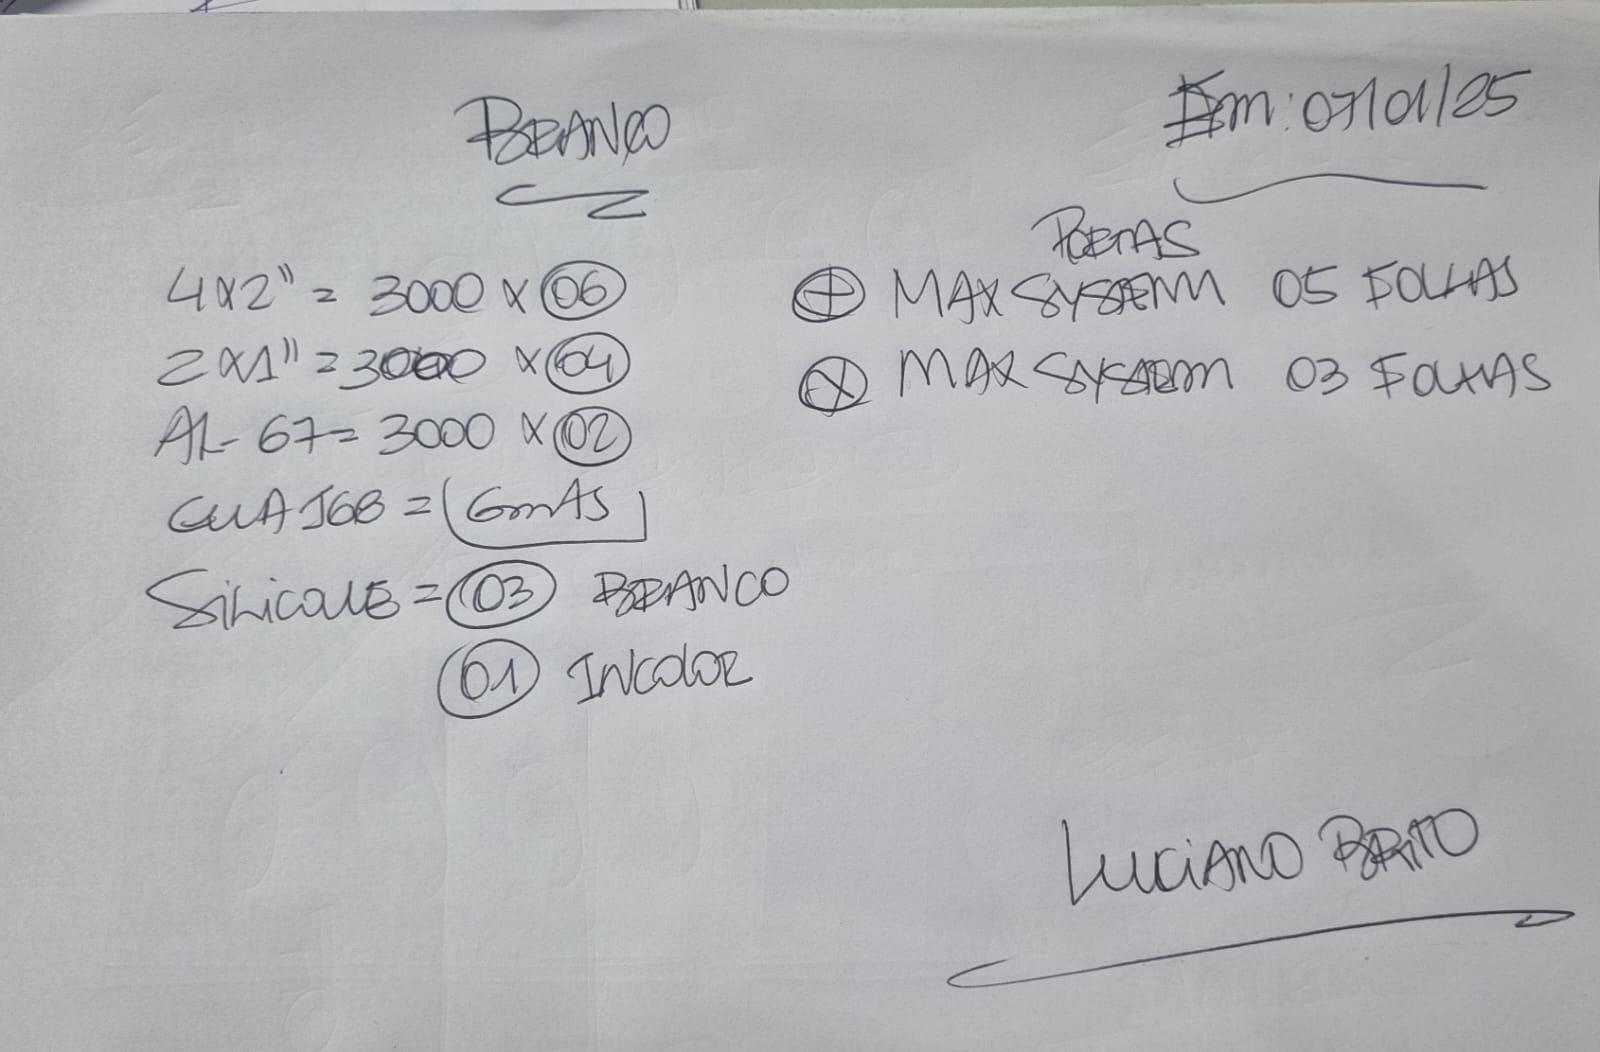 BRANCO
Em: 07/01/25
4x2" = 3000 x 06
2x1" = 3000 x 04
AL-67 = 3000 x 02
= 6mAS
SiliCONE = 03 BRANCO
01 INCOLOR
PORTAS
MAX SYSTEM 05 FOLHAS
MAX SYSTEM 03 FOLHAS
LUCiANO BRITO